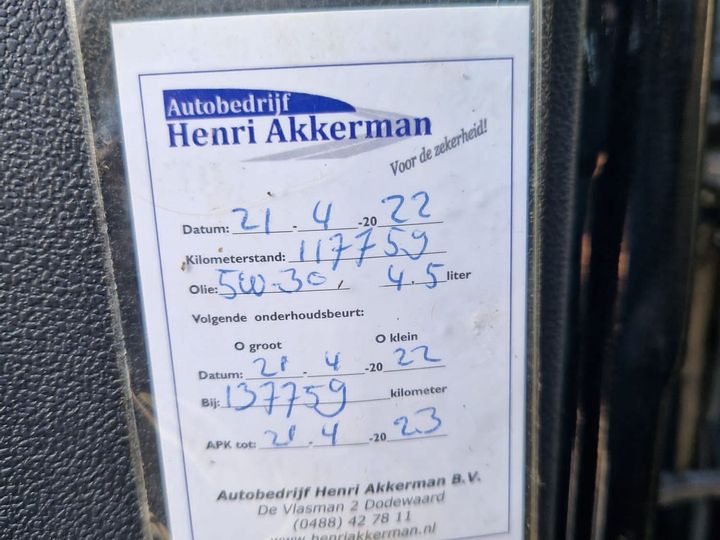 Autobedrijf
Henri Akkerman
Voor de zekerheid!
Datum: 21 - 4 -20 22
Kilometerstand: 117759
Olie: 5W-30, 4.5 liter
Volgende onderhoudsbeurt:
O groot O klein
Datum: 21 - 4 -20 22
Bij: 137759 kilometer
APK tot: 21 - 4 -20 23
Autobedrijf Henri Akkerman B.V.
De Vlasman 2 Dodewaard
(0488) 42 78 11
www.henriakkerman.nl